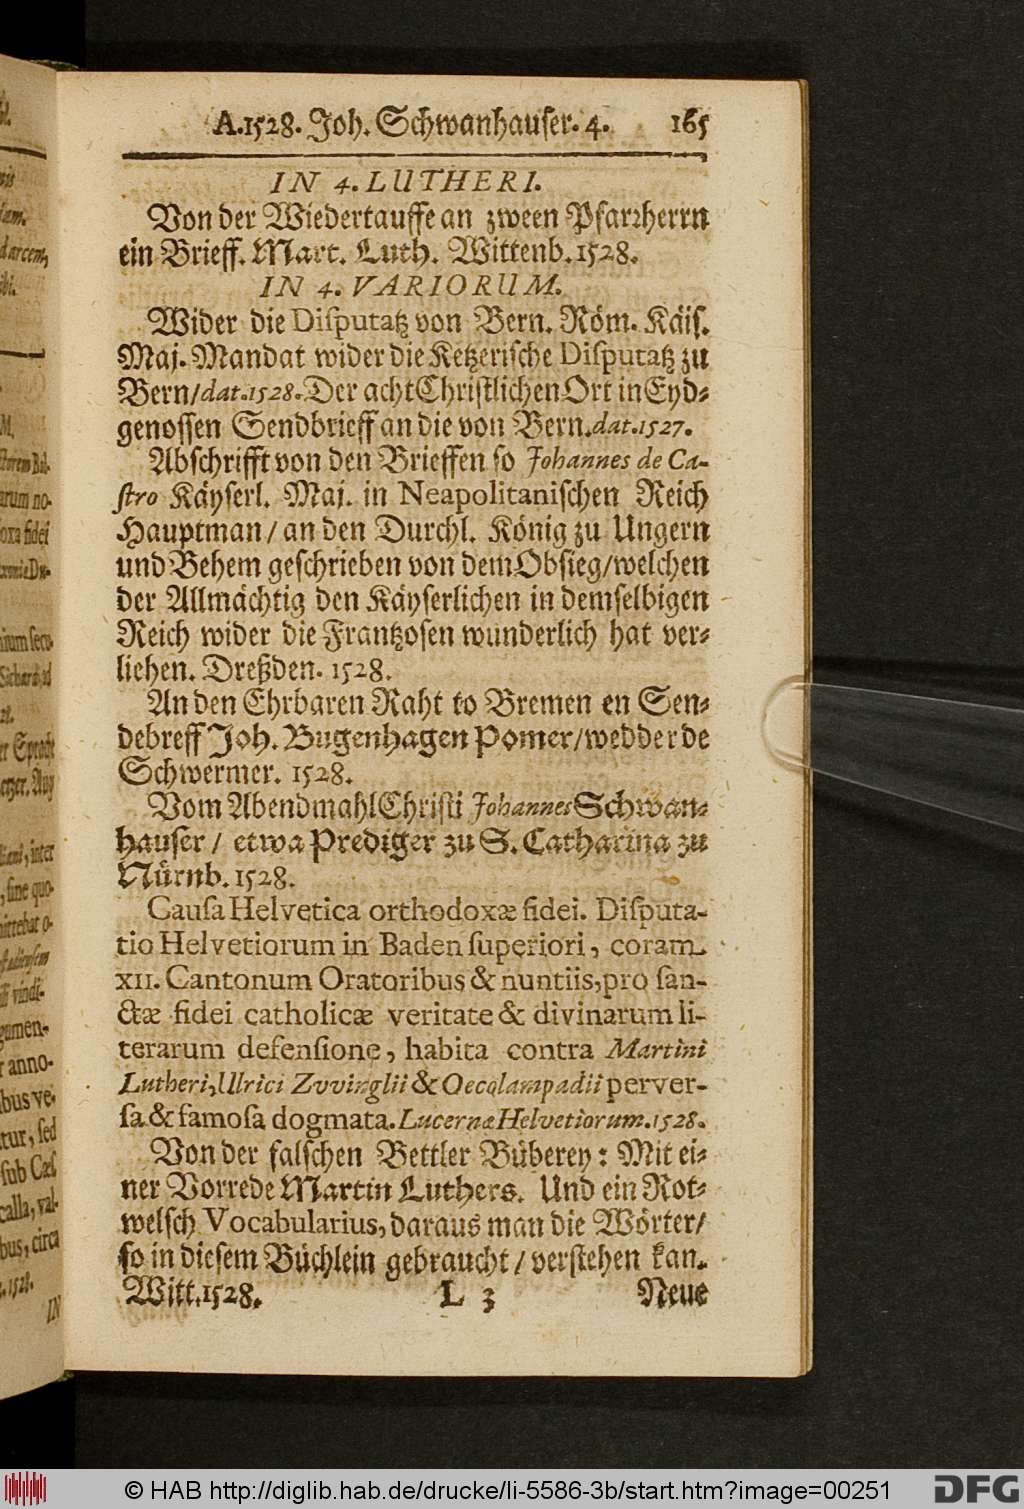 A.1528. Joh. Schwanhauser. 4. 165
IN 4. LUTHERI.
Von der Wiedertauffe an zween Pfarzherrn
ein Brieff. Mart. Luth. Wittenb. 1528.
IN 4. VARIORUM.
Wider die Disputatz von Bern. Röm. Käis.
Maj. Mandat wider die Ketzerische Disputatz zu
Bern/dat.1528. Der acht Christlichen Ort in Eyd-
genossen Sendbrieff an die von Bern. dat.1527.
Abschrifft von den Brieffen so Johannes de Ca-
stro Käyserl. Maj. in Neapolitanischen Reich
Hauptman/ an den Durchl. König zu Ungern
und Behem geschrieben von dem Obsieg/welchen
der Allmächtig den Käyserlichen in demselbigen
Reich wider die Frantzosen wunderlich hat ver-
liehen. Dreßden. 1528.
An den Ehrbaren Raht to Bremen en Sen-
debreff Joh. Bugenhagen Pomer/wedder de
Schwermer. 1528.
Vom Abendmahl Christi Johannes Schwan-
hauser/ etwa Prediger zu S. Catharina zu
Nürnb. 1528.
Causa Helvetica orthodoxæ fidei. Disputa-
tio Helvetiorum in Baden superiori, coram
XII. Cantonum Oratoribus & nuntiis, pro san-
ctæ fidei catholicæ veritate & divinarum li-
terarum defensione, habita contra Martini
Lutheri, Ulrici Zvvinglii & Oecolampadii perver-
sa & famosa dogmata. Lucernæ Helvetiorum. 1528.
Von der falschen Bettler Büberey: Mit ei-
ner Vorrede Martin Luthers. Und ein Rot-
welsch Vocabularius, daraus man die Wörter/
so in diesem Büchlein gebraucht/ verstehen kan.
Witt. 1528. L 3 Neue
© HAB http://diglib.hab.de/drucke/li-5586-3b/start.htm?image=00251
DFG